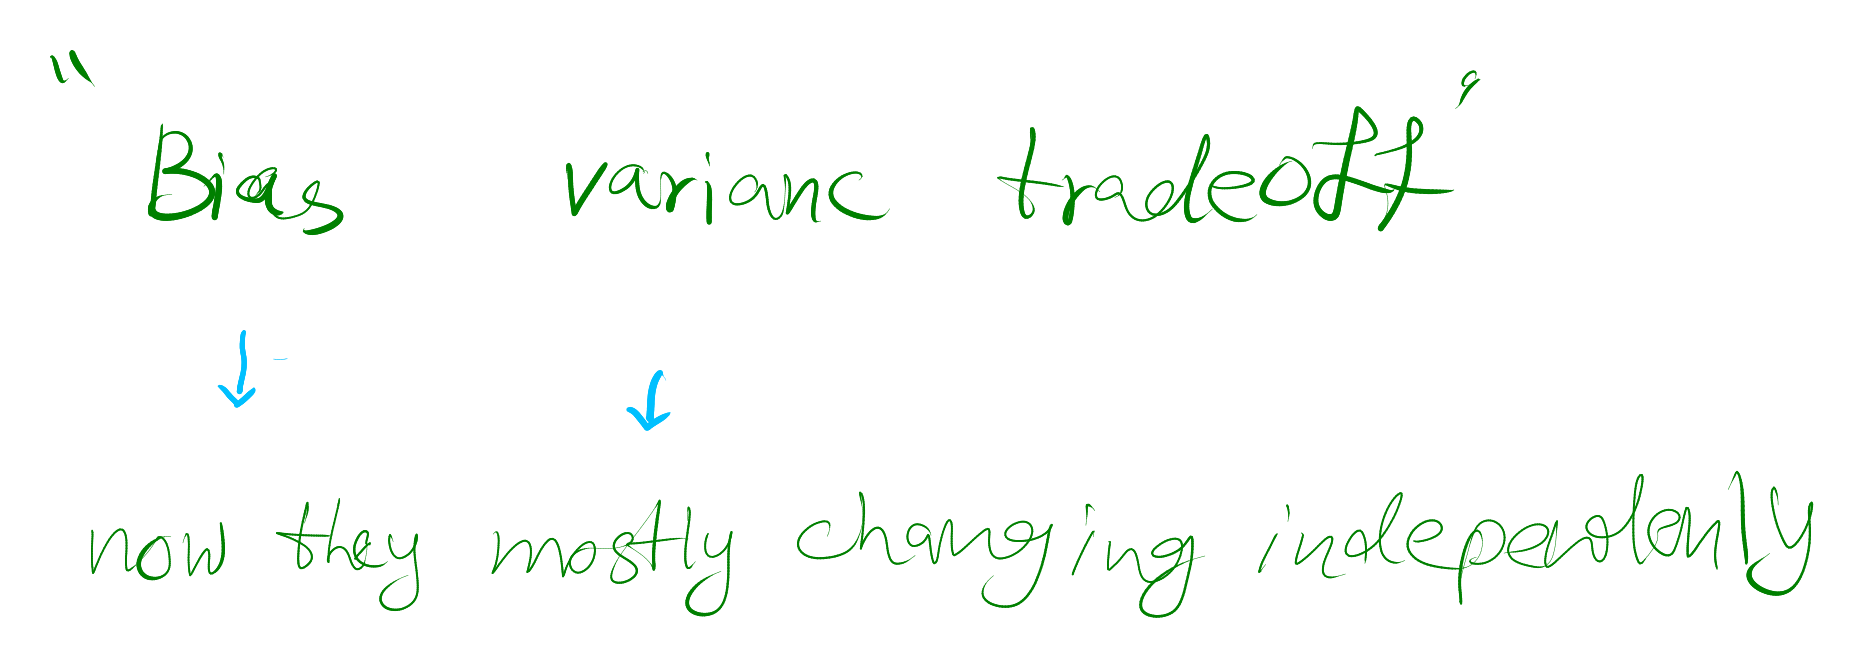 "Bias varianc tradeoff"
now they mostly changing independenly